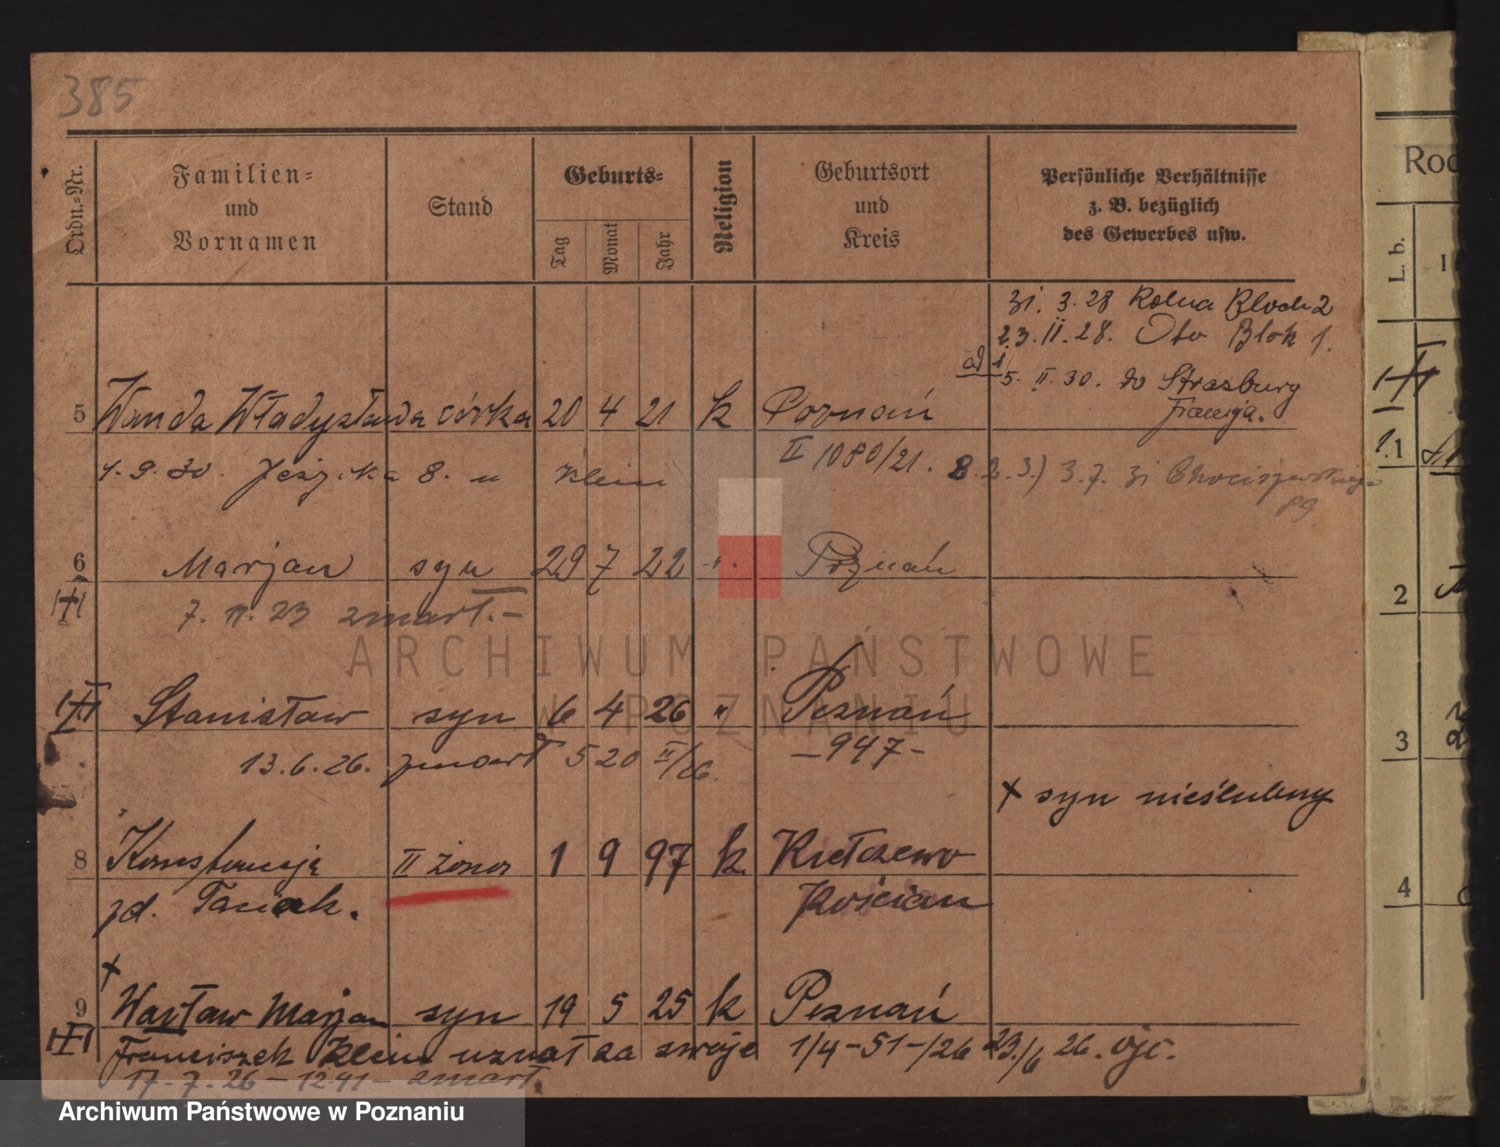 385
Ordn.-Nr.
Familien-
und
Vornamen
Stand
Geburts-
Tag
Monat
Jahr
Religion
Geburtsort
und
Kreis
Persönliche Verhältnisse
z. B. bezüglich
des Gewerbes usw.
31. 3. 28 Rolna Block 2
23. II. 28. Blok 1.
5. II. 30. do Strasburg
Francja.
5 Wanda Władysława córka 20 4 21 k Poznań
II 1080/21.
1. 9. 30. 8. u Klein
3.) 3. 7. 31
89.
6 Marjan syn 29 7 22 " Poznań
7. 11. 23 zmarł.-
Stanisław syn 6 4 26 " Poznań
13. 6. 26. zmarł 520 II/26. -947-
+ syn nieślubny
8 Konstancja II żona 1 9 97 k. Kiełczewo
zd. Taciak. Kościan
+
9 Wacław Marjan syn 19 5 25 k Poznań
Franciszek Klein uznał za swoje 1/4-51-/26 23./6 26. ojc.
17-7-26-1241- zmarł.
ARCHIWUM PAŃSTWOWE
W POZNANIU
Archiwum Państwowe w Poznaniu
L. b.
1
2
3
4